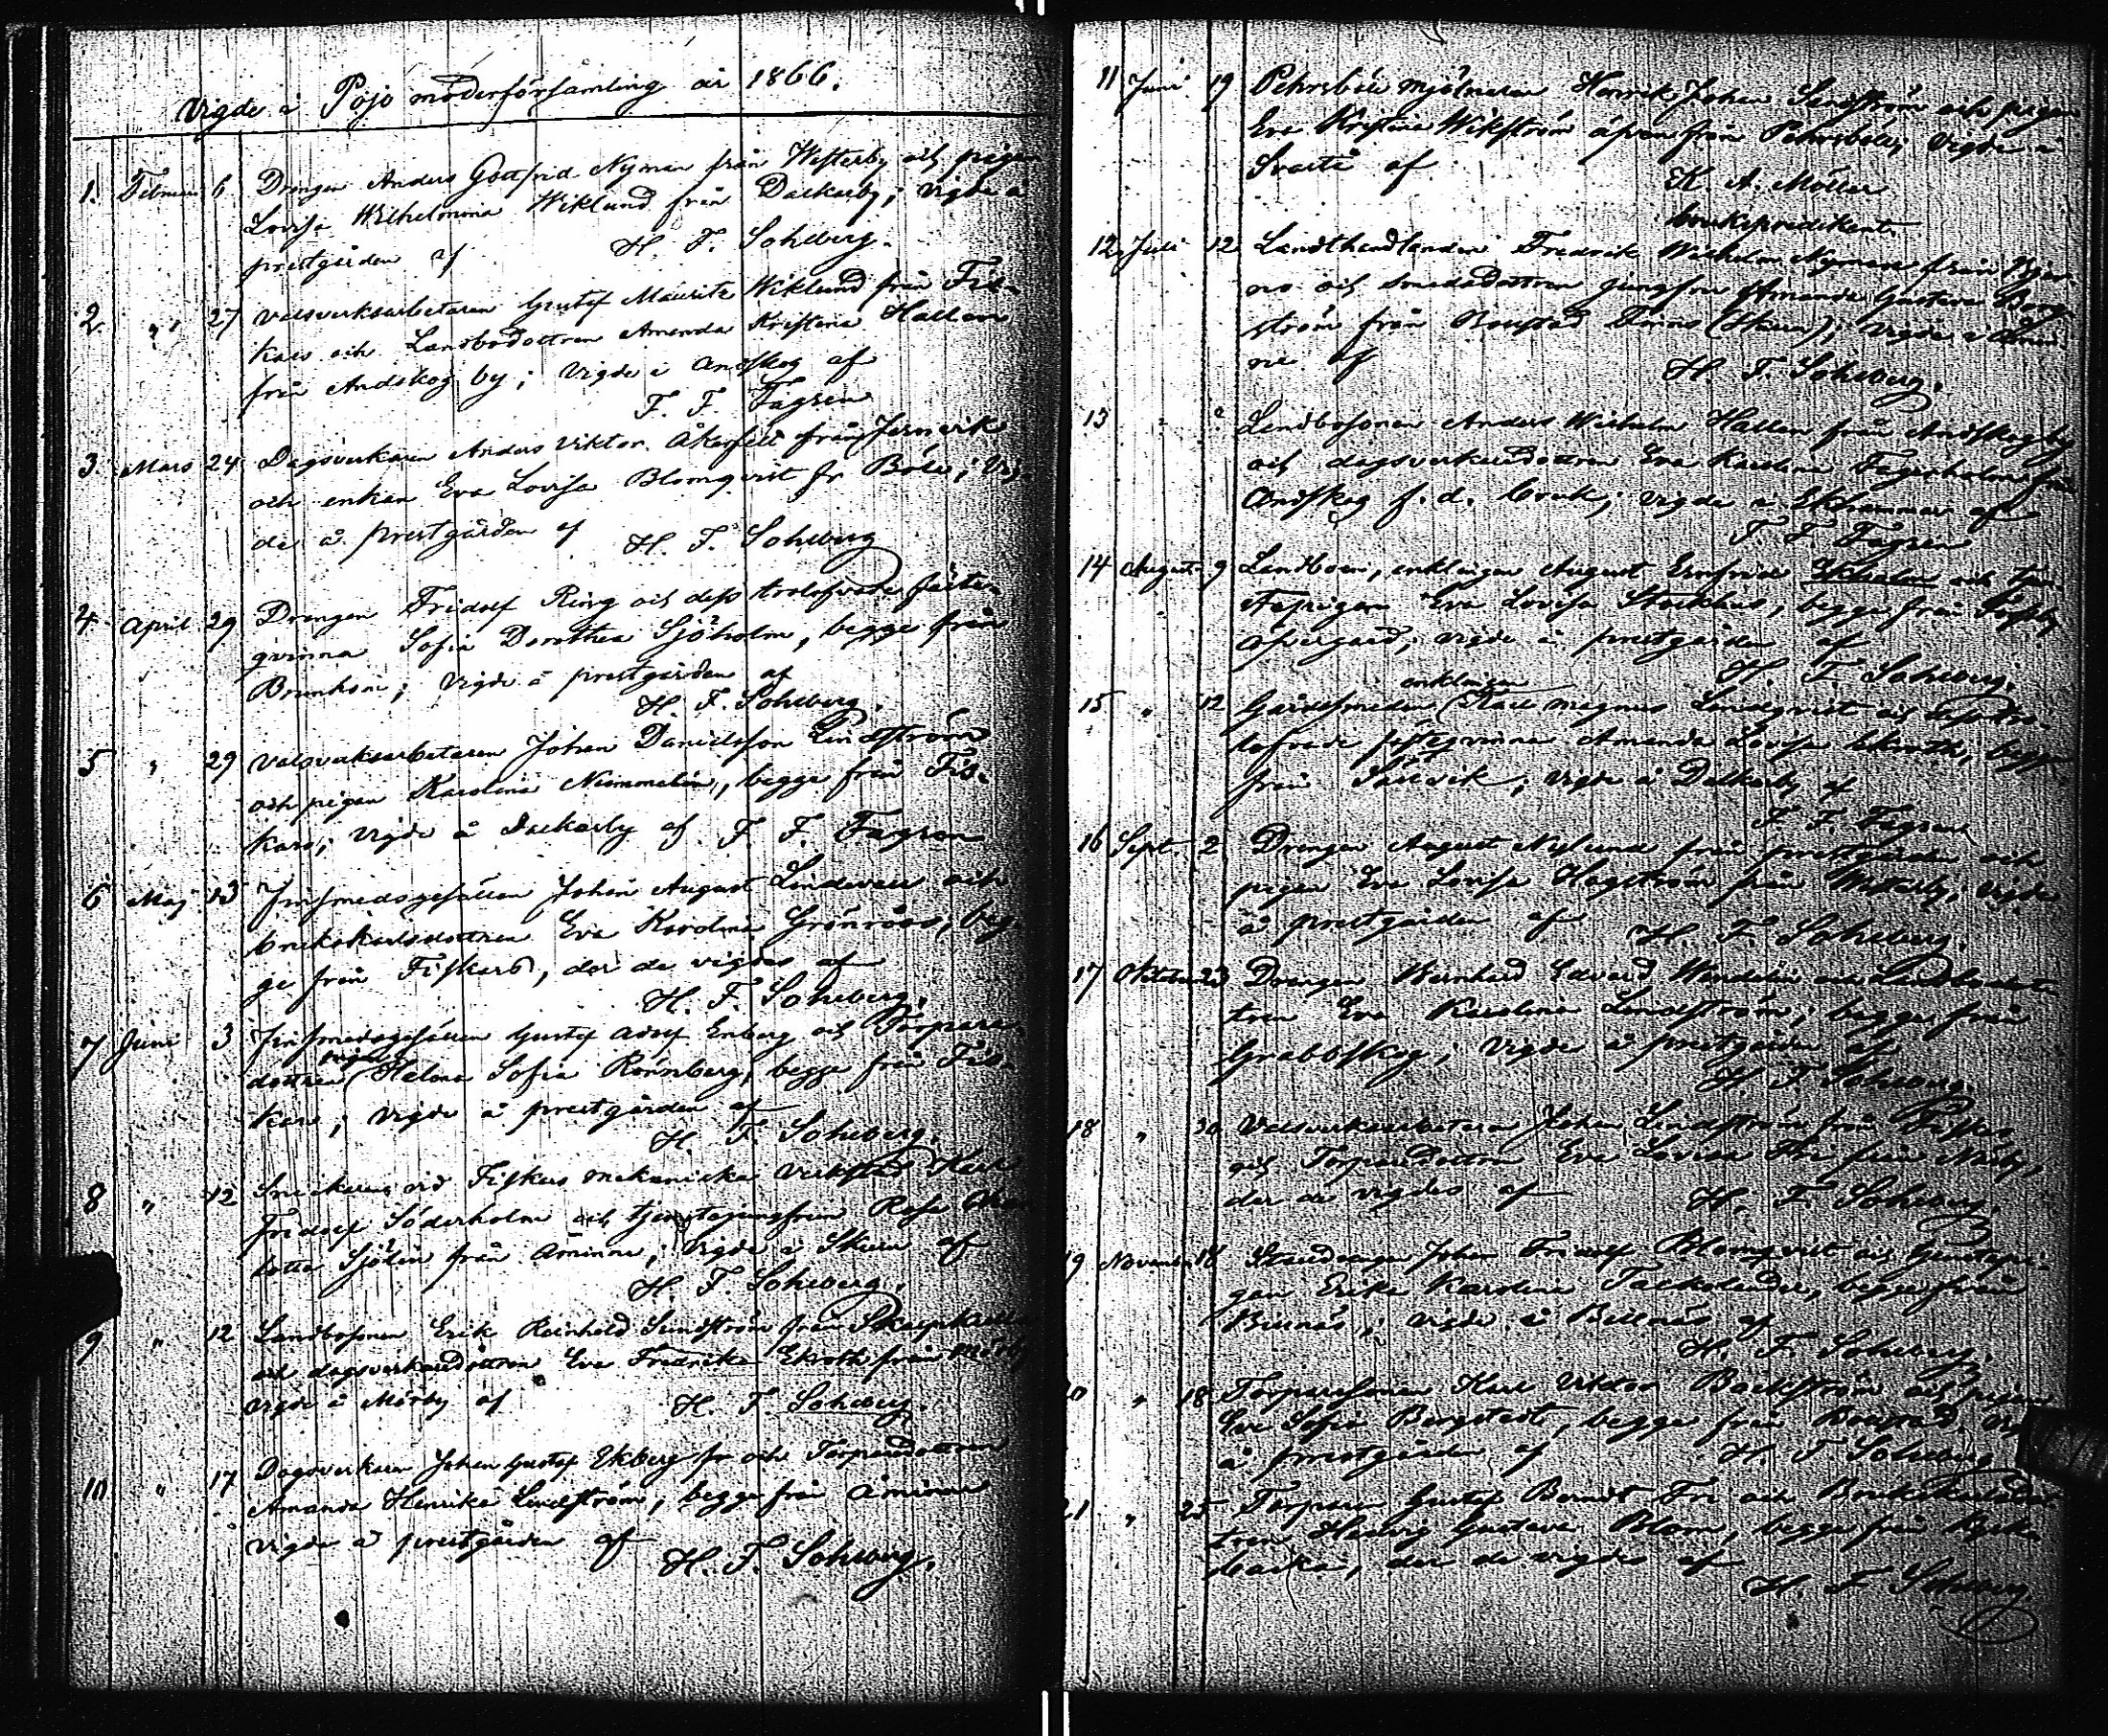 Vigde i Pojo moderförsamling år 1866.
1. Februari 6 Drengen Anders Gottfrid Nyman från Westerby och pigan
Lovisa Wilhelmina Wiklund från Dalkarby; vigde å
prestgården af H. F. Sohlberg.
2 " 27 Valsverksarbetaren Gustaf Mauritz Wiklund från Fis-
kars och Landbodottren Amanda Kristina Hallen
från Andskog by; vigde i Andskog af
F. F. Fagren
3. Mars 24 Dagsverkaren Anders Viktor Åkerfelt från Jernvik
och enkan Eva Lovisa Blomqvist fr Böle; vig-
de å prestgården af H. F. Sohlberg
4 April 29 Drengen Fridolf Ring och dess trolofvade fäste-
qvinna Sofia Dorothea Sjöholm, begge från
Brunkom; vigde å prestgården af
H. F. Sohlberg.
5 " 29 Valsverksarbetaren Johan Danielsson Lindström
och pigan Karolina Nimmelin, begge från Fis-
kars; vigde å Dalkarby af F. F. Fagren
6 Maj 13 Finsmedsgesällen Johan August Lindevall och
brukskarlsdottren Eva Karolina Grönroos, beg-
ge från Fiskars, der de vigdes af
H. F. Sohlberg.
7 Juni 3 Finsmedsgesällen Gustaf Adolf Enberg och Torpare-
dottren pigan Helena Sofia Rönnberg, begge från Fis-
kars; vigde å prestgården af
H. F. Sohlberg.
8 " 12 Snickaren vid Fiskars mekaniska verkstad Karl
Fridolf Söderholm och tjenstejungfrun Rosa
lotta Sjölin från Åminne; vigde i Skuru af
H. F. Sohlberg.
9 " 12 Landbosonen Erik Reinhold Sundström från
och dagsverkaredottren Eva Fredrika Ekroth från Mörby
vigde i Mörby af H. F. Sohlberg.
10 " 17 Dagsverkaren Johan Gustaf Ekberg fr och Torparedottren
Amanda Henrika Lindström, begge från Åminne
vigde å prestgården af
H. F. Sohlberg.
11 Juni 19 Pehrsböle Mjölnaren Henrik Johan Sundström och pigan
Eva Kristina Wikström äfven från Pehrsböle; vigde i
Svartå af
K A. Möller
brukspredikant.
12 Juli 12 Landthandlanden Fredrik Wilhelm Nyman från Bjer-
no och smedsdottren jungfrun Amanda Gustava Borg-
ström från Bollstad Finns (Skuru); vigde i Åmin-
ne af
H. F. Sohlberg.
13 Landbosonen Anders Wilhelm Hallen från Andskog by
och dagsverkaredottren Eva Karolina Fagerholm från
Andskog f. d. bruk; vigde å Ekhammar af
F. F. Fagren
14 Augusti 9 Landboen, enklingen August Ernfrid Ekholm och tjen-
stepigan Eva Lovisa Stocklund, begge från
; vigde å prestgården af
H. F. Sohlberg.
15 " 12 Gårdssmeden enklingen Karl Magnus Lindqvist och dess tro-
lofvade fästeqvinna Amanda Lovisa Ekroth, begge
från Skälvik; vigde å Dalkarby af
F. F. Fagren
16 Sept. 2 Drengen August Nylund från prestgården och
pigan Eva Lovisa Hagström från Westerby; vigde
å prestgården af
H. F. Sohlberg.
17 Oktober 23 Drengen Bernhard Edvard Wendelin och Landbodott-
tren Eva Karolina Lindström, begge från
Grabbskog; vigde å prestgården af
H. F. Sohlberg.
18 " 30 Valsverksarbetaren Johan Lindström från Fiskars
och Torparedottren Eva Lovisa Fri från Näsby,
der de vigdes af H. F. Sohlberg.
19 November 18 Stalldrengen Johan Fridolf Blomqvist och tjenstepi-
gan Erika Karolina Tackolander, begge från
Billnäs; vigde i Billnäs af
H. F. Sohlberg.
20 " 18 Torparesonen Karl Viktor Backström och pigan
Eva Sofia Bergstedt, begge från Bollstad, vig-
å prestgården af H. F. Sohlberg
21 " 25 Torparen Gustaf Berndt Fri och Brukskarlsdot-
tren Hedvig Gustava Blom, begge från Kyrk-
backa, der de vigdes af
H. F. Sohlberg